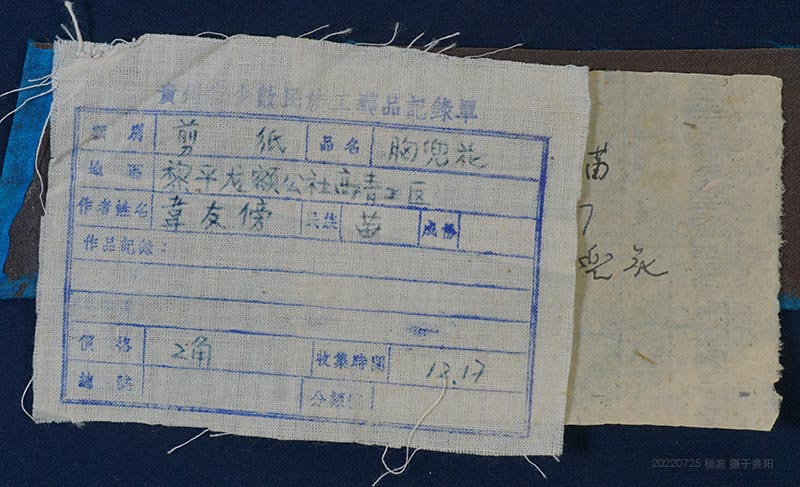 貴州省少数民族工藝品記錄單
類別 剪紙 品名 胸兜花
地區 黎平龙额公社高青工区
作者姓名 韋友傍 民族 苗 成份
作品記錄：
價格 2角 收集時間 12.17
總號 分類號
苗
7
兜花
20220725 杨波 摄于贵阳